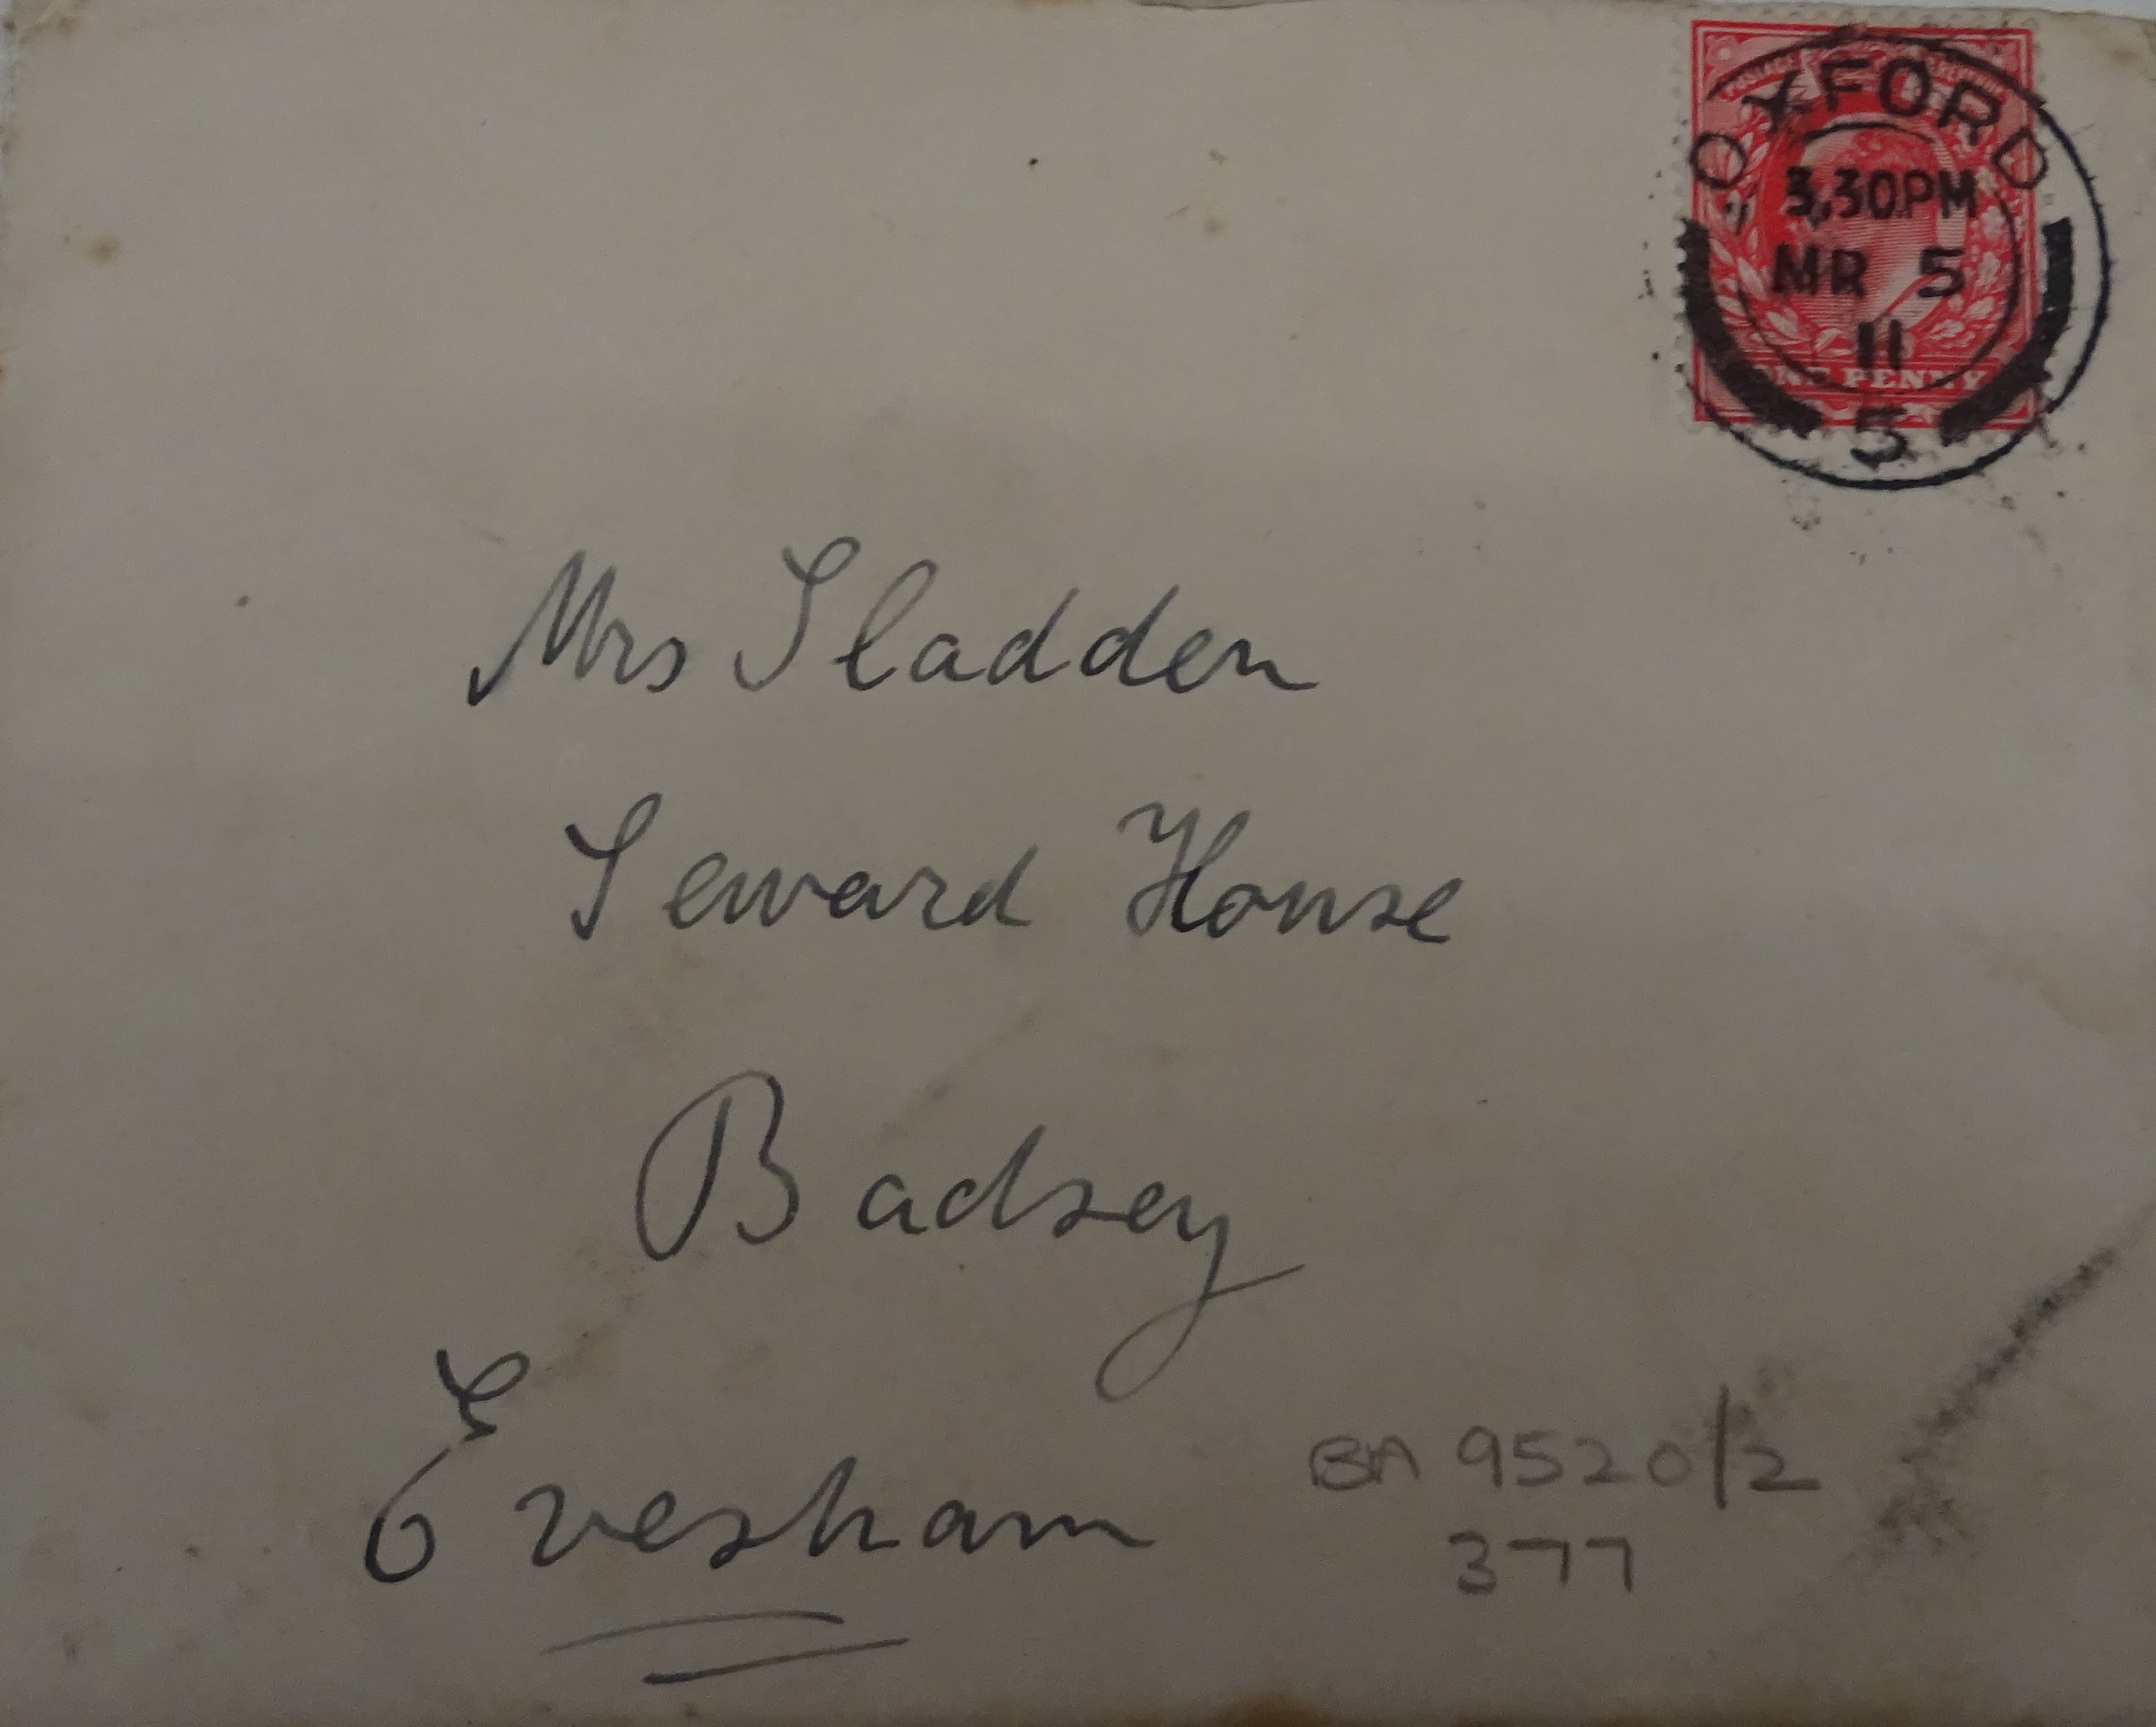 OXFORD
3.30PM
MR 5
11
5
ONE PENNY
Mrs Sladden
Seward House
Badsey
Evesham
BA 9520/2
377